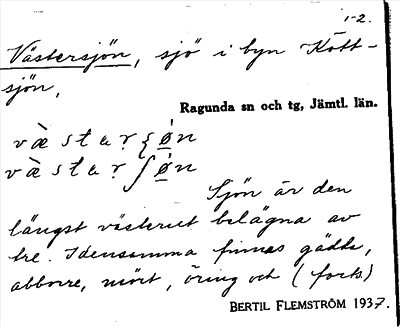 1-2.
Västersjön, sjö i byn Kött-
sjön,
Ragunda sn och tg, Jämtl. län.
Sjön är den
längst västerut belägna av
tre. I densamma finnas gädda,
abborre, mört, öring och (forts.)
BERTIL FLEMSTRÖM 1937.